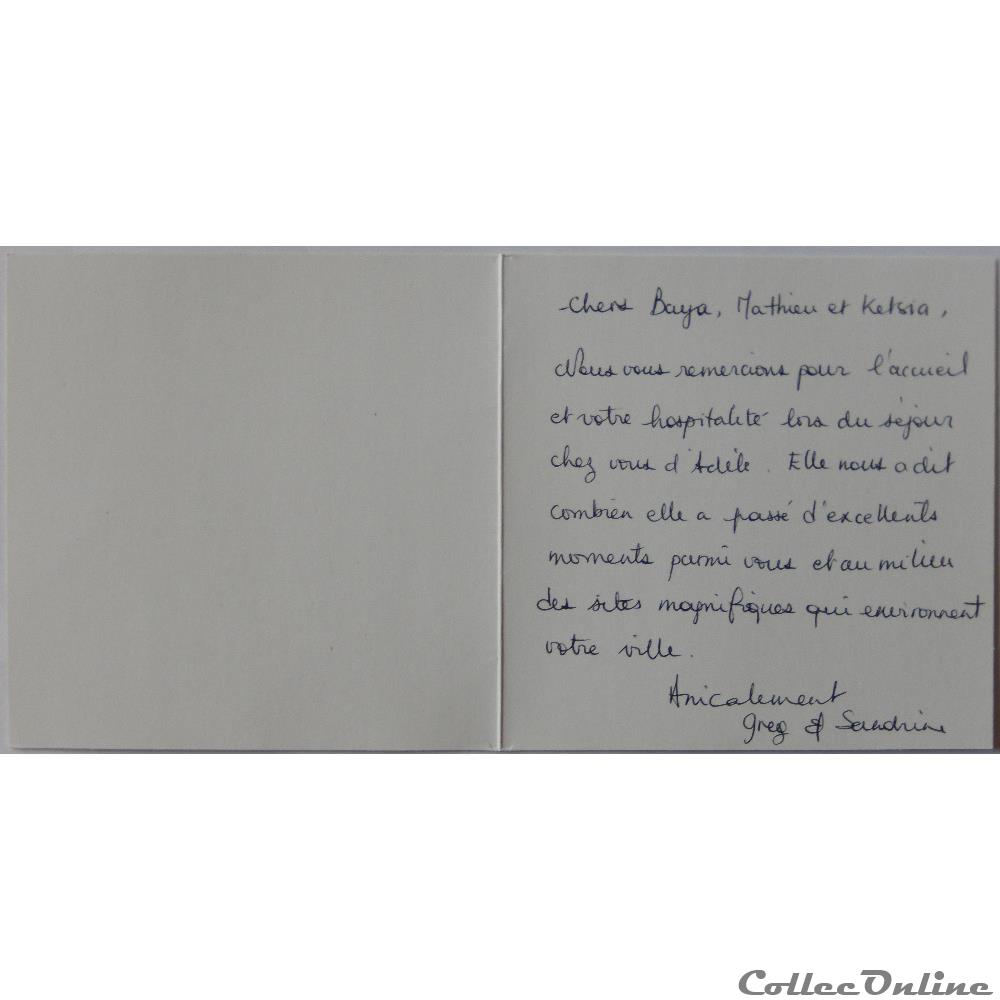 Chers Baya, Mathieu et Ketsia,
Nous vous remercions pour l'accueil
et votre hospitalité lors du séjour
chez vous d'Adèle. Elle nous a dit
combien elle a passé d'excellents
moments parmi vous et au milieu
des sites magnifiques qui environnent
votre ville.
Amicalement
Greg & Sandrine
CollecOnline